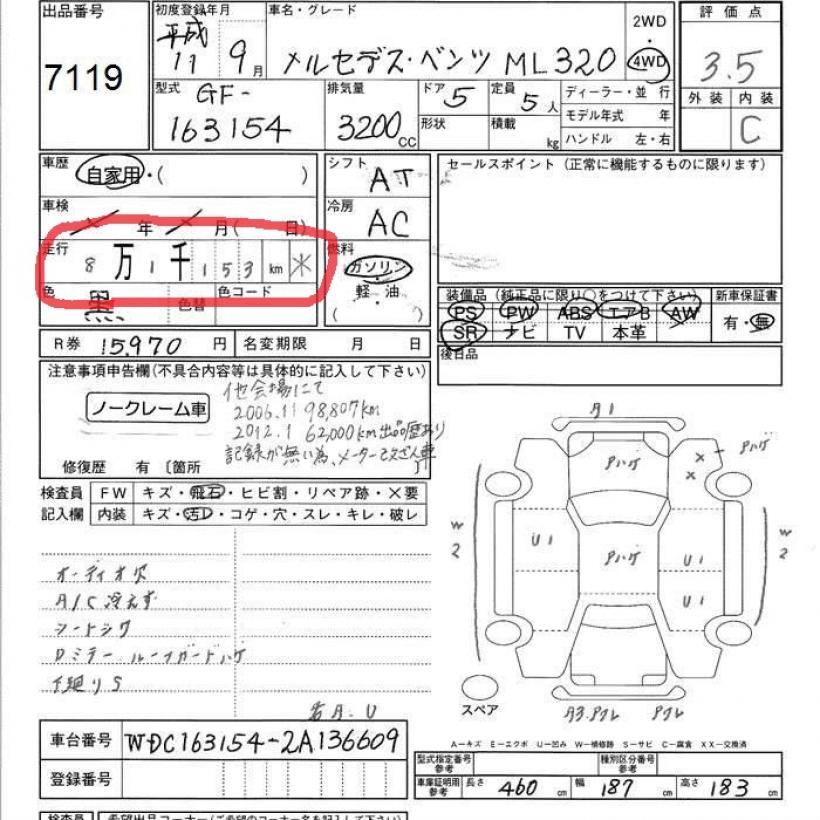 出品番号 初度登録年月 車名・グレード 2WD 評価点
7119 平成 11 9月 メルセデス・ベンツ ML320 ・ 4WD 3.5
型式 GF- 163154 排気量 3200cc ドア 5 定員 5人 ディーラー・並 行
形状 積載 kg モデル年式 年
ハンドル 左・右
外装 内装 C
車歴 自家用・( ) シフト AT セールスポイント (正常に機能するものに限ります)
車検 年 月( 日) 冷房 AC
走行 8万1千153km ✳ 燃料 ガソリン
色 黒 色替 色コード 軽・油
( ・ )
装備品 (純正品に限り○をつけて下さい) 新車保証書
PS PW ABS エアB AW 有・無
SR ナビ TV 本革
R券 15,970 円 名変期限 月 日 後日品
注意事項申告欄(不具合内容等は具体的に記入して下さい)
ノークレーム車 他会場にて
2006.11 98,807km
2012.1 62,000km出品歴あり
記録が無い為、メーター改ざん車
修復歴 有 〔箇所 〕
検査員 FW キズ・飛石・ヒビ割・リペア跡・×要
記入欄 内装 キズ・汚レ・コゲ・穴・スレ・キレ・破レ
A1
Pハゲ × ー Pハゲ
×
W2 U1 Pハゲ U1 W2
U1
オーディオ欠
A/C冷えず
シートシワ
Dミラー ルーフガードハゲ
下廻りS
若A.U
スペア
A3.Pワレ Pワレ
A—キズ E—エクボ U—凹み W—補修跡 S—サビ C—腐食 XX—交換済
車台番号 WDC163154-2A136609
型式指定番号 参考 種別区分番号 参考
登録番号 車庫証明用 参考 長さ 460 cm 幅 187 cm 高さ 183 cm
検査員 希望出品コーナー(ご希望のコーナー名を記入して下さい)